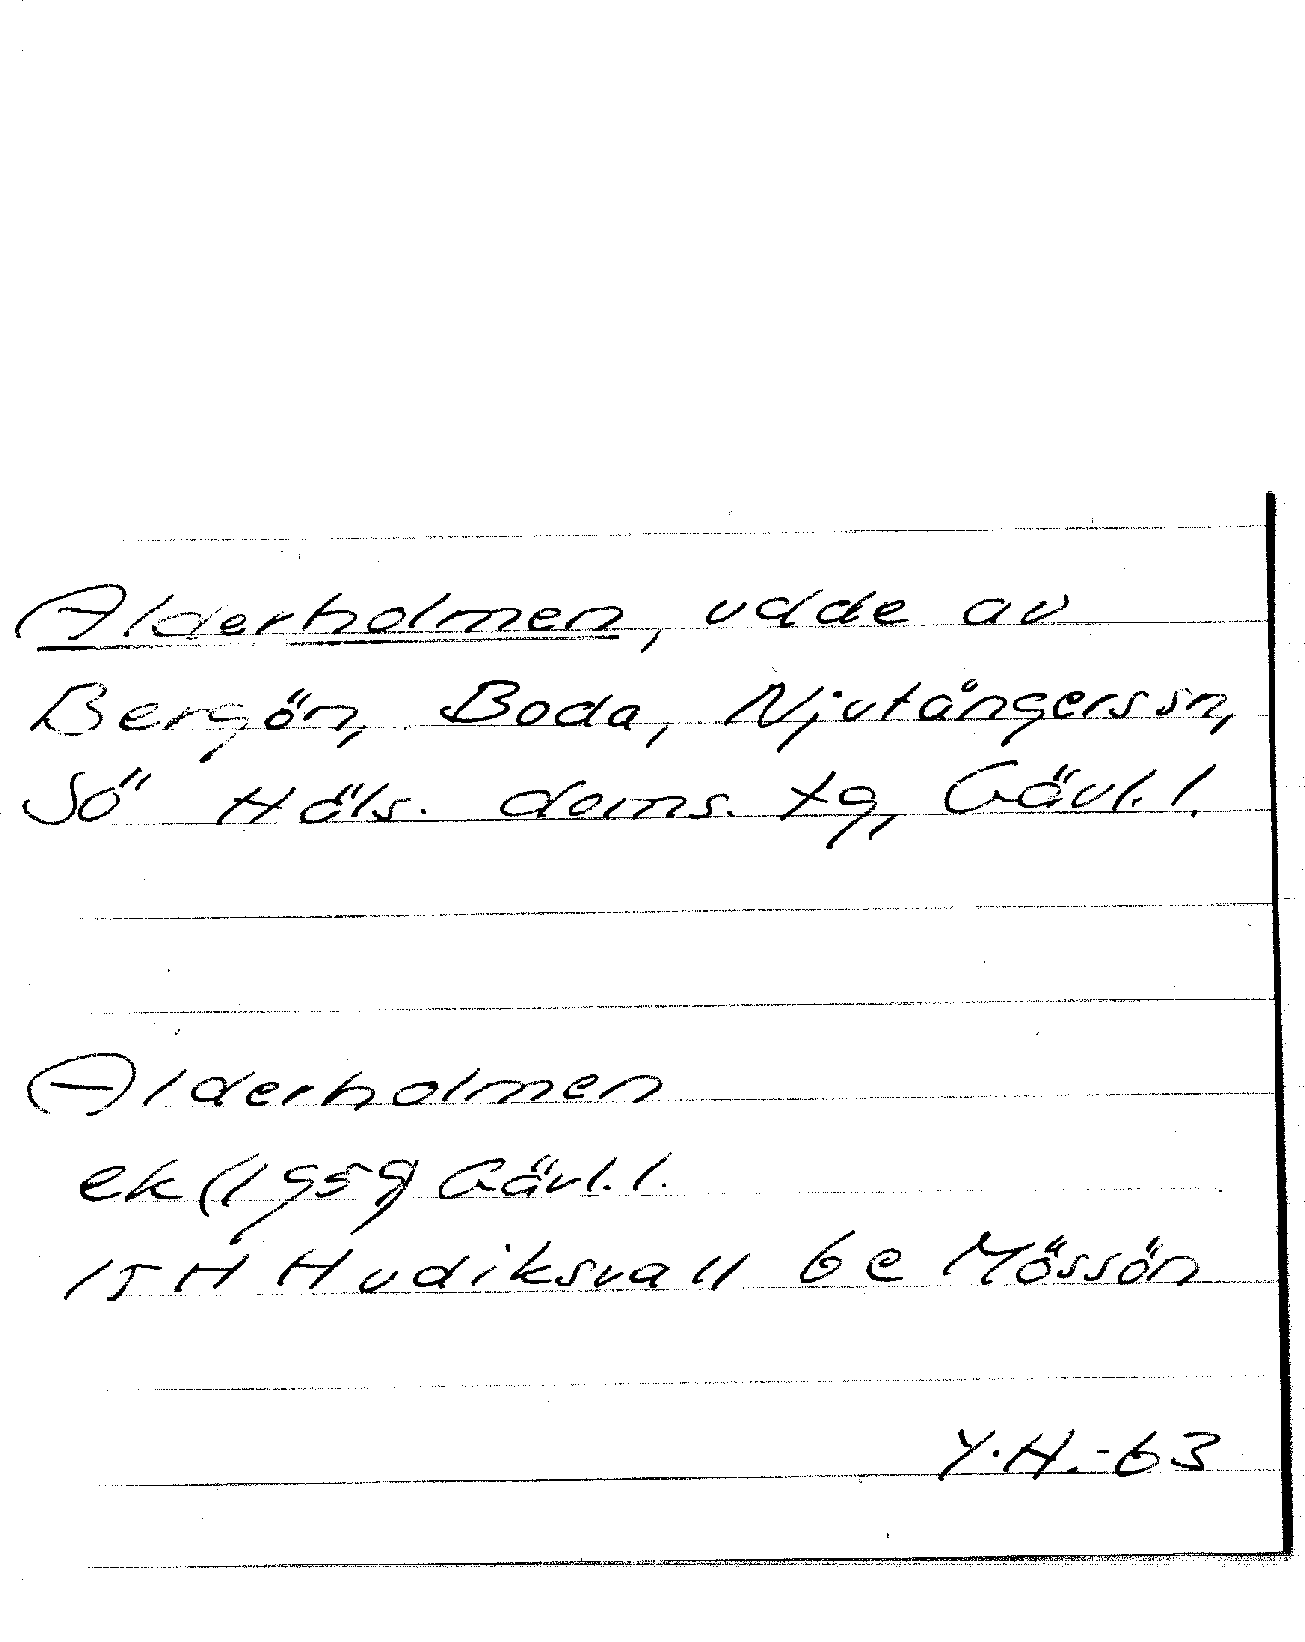 Alderholmen, udde av
Bergön, Boda, Njutångerssn,
Sö Häls. doms. tg, Gävl. l.
Alderholmen
ek (1959) Gävl. l.
15H Hudiksvall 6e Mössön
Y.H.-63